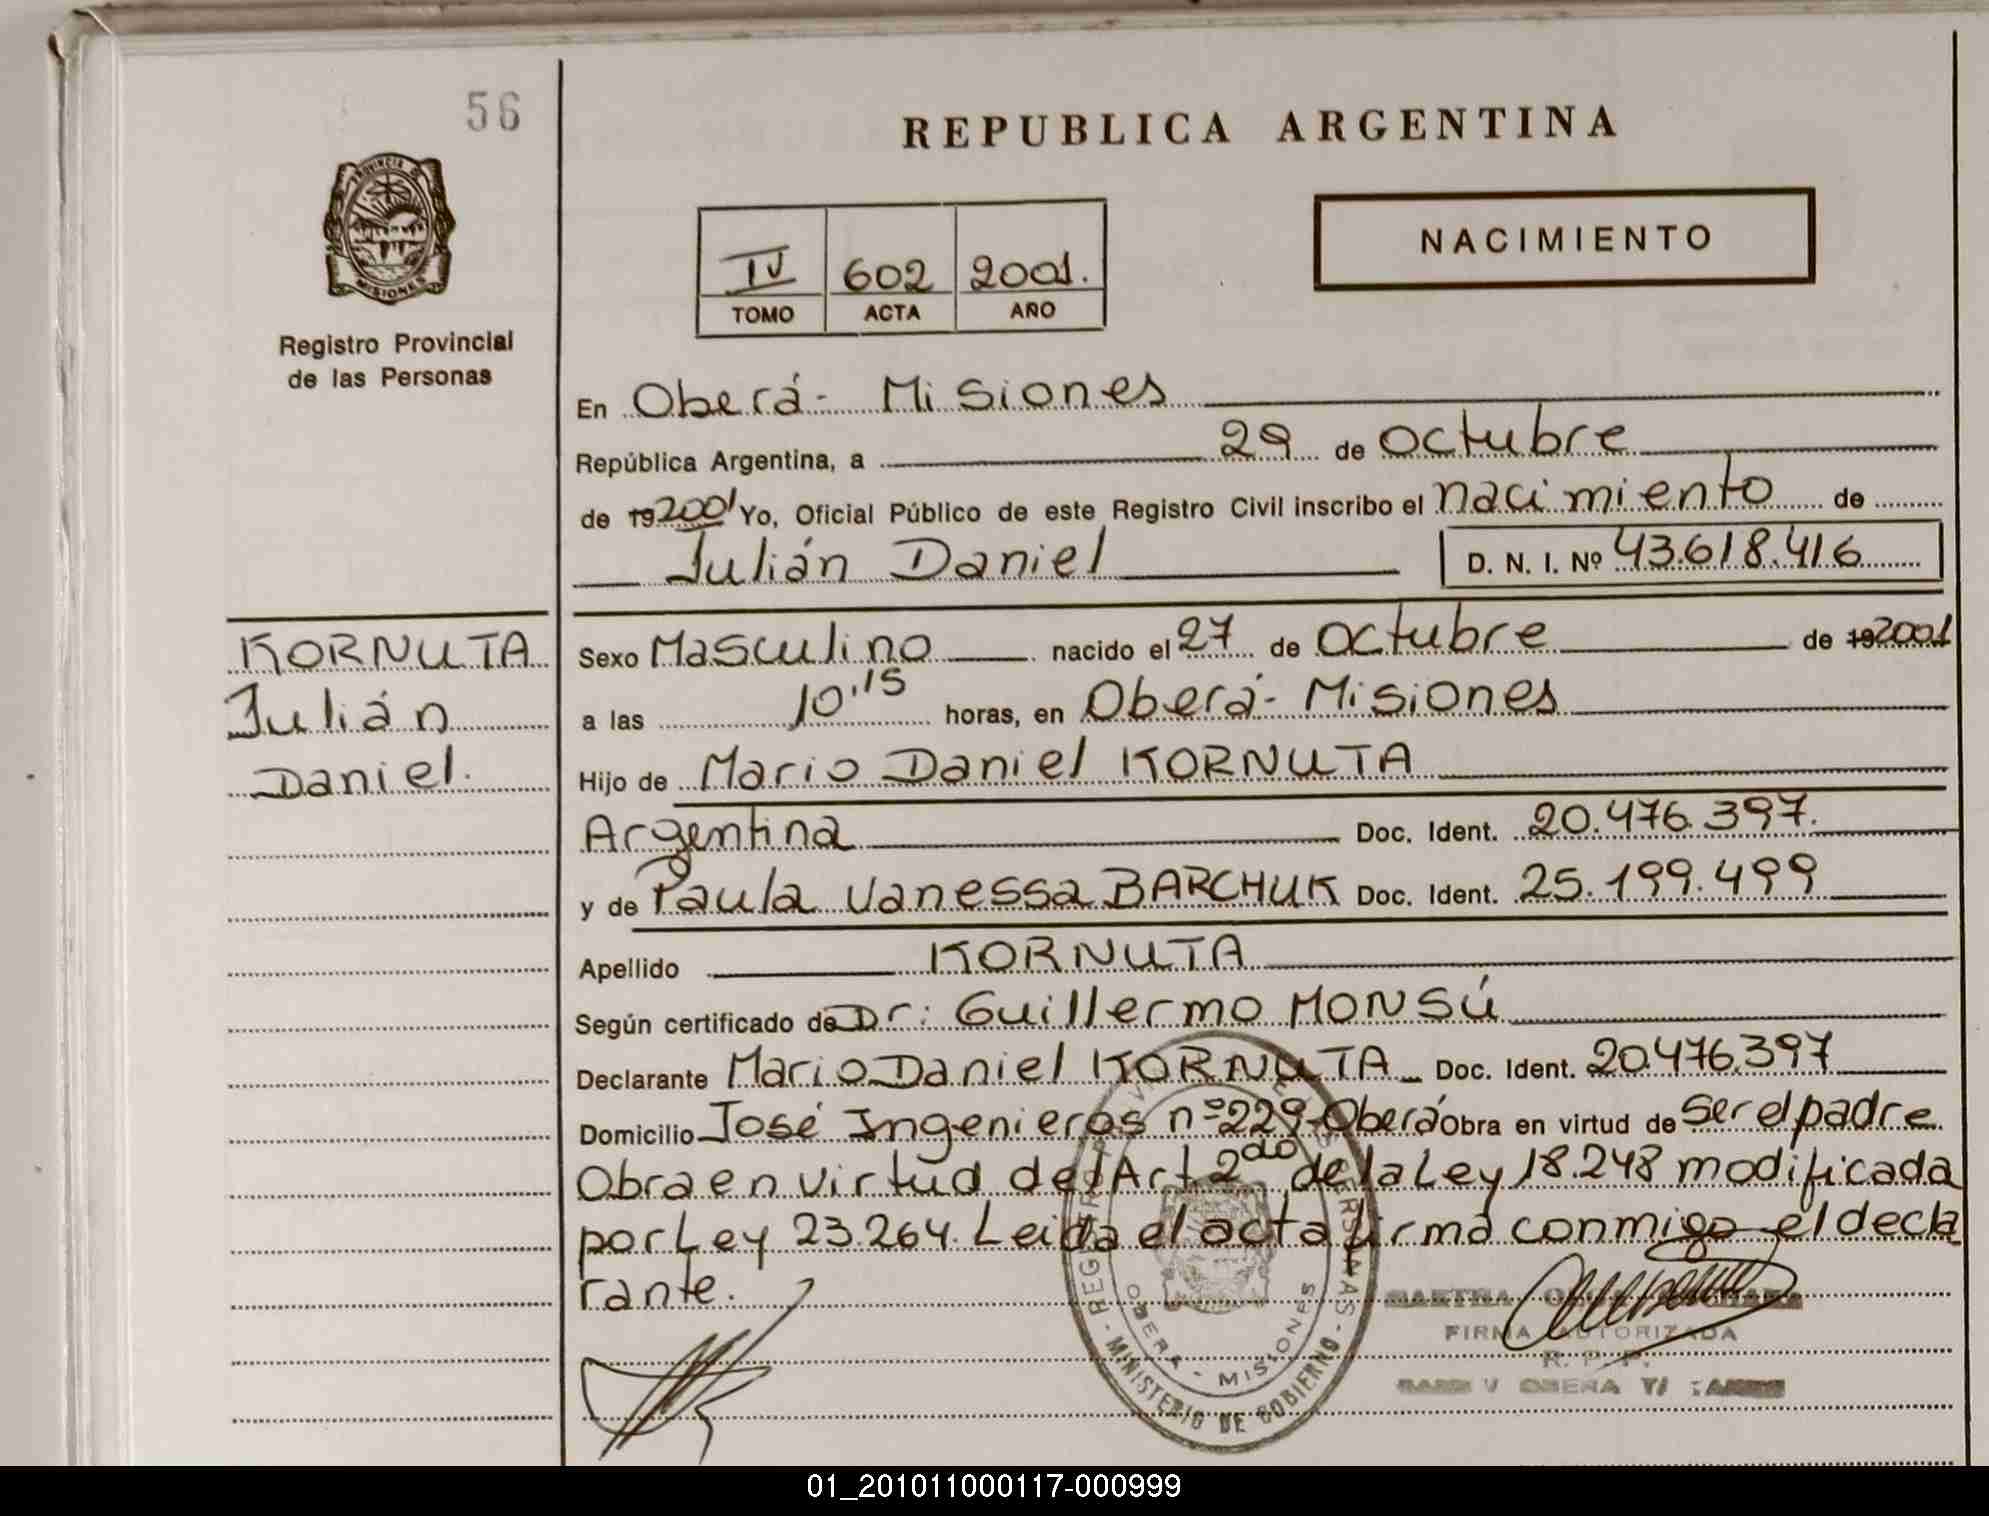 56
REPUBLICA ARGENTINA
PROVINCIA DE
MISIONES
Registro Provincial
de las Personas
NACIMIENTO
IV 602 2001.
TOMO ACTA AÑO
En Oberá - Misiones
República Argentina, a 29 de octubre
de 19 2001 Yo, Oficial Público de este Registro Civil inscribo el nacimiento de
Julián Daniel D. N. I. Nº 43.618.416
KORNUTA
Julián
Daniel.
Sexo Masculino nacido el 27 de octubre de 19 2001
a las 10'15 horas, en Oberá - Misiones
Hijo de Mario Daniel KORNUTA
Argentina Doc. Ident. 20.476.397.
y de Paula Vanessa BARCHUK Doc. Ident. 25.199.499
Apellido KORNUTA
Según certificado de Dr: Guillermo MONSÚ
Declarante Mario Daniel KORNUTA Doc. Ident. 20.476.397
Domicilio José Ingenieros nº 229-Oberá Obra en virtud de ser el padre.
Obra en virtud del Art 2do de la Ley 18.248 modificada
por Ley 23.264. Leida el acta firma conmigo el decla
rante.
OBERA - MISIONES
MINISTERIO DE GOBIERNO
FIRMA AUTORIZADA
R. P. P.
01_201011000117-000999